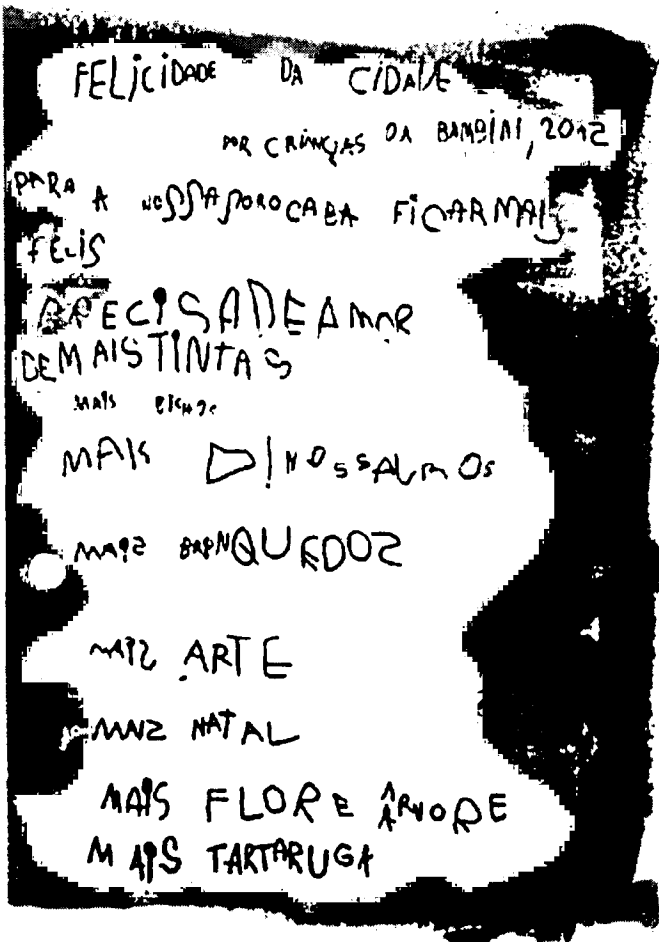 FELiCiDADE DA CIDADE
POR CRIANÇAS DA BAMBINI, 2012
PARA A NOSSA SOROCABA FiCAR MAIS
FELIS
PRECISA DE AMOR
DE MAIS TINTAS
MAIS BICHOS
MAIS DINOSSAUROS
MAIS BRINQUEDOZ
MAIS ARTE
MAIZ NATAL
MAIS FLOR E ÁRVORE
MAIS TARTARUGA